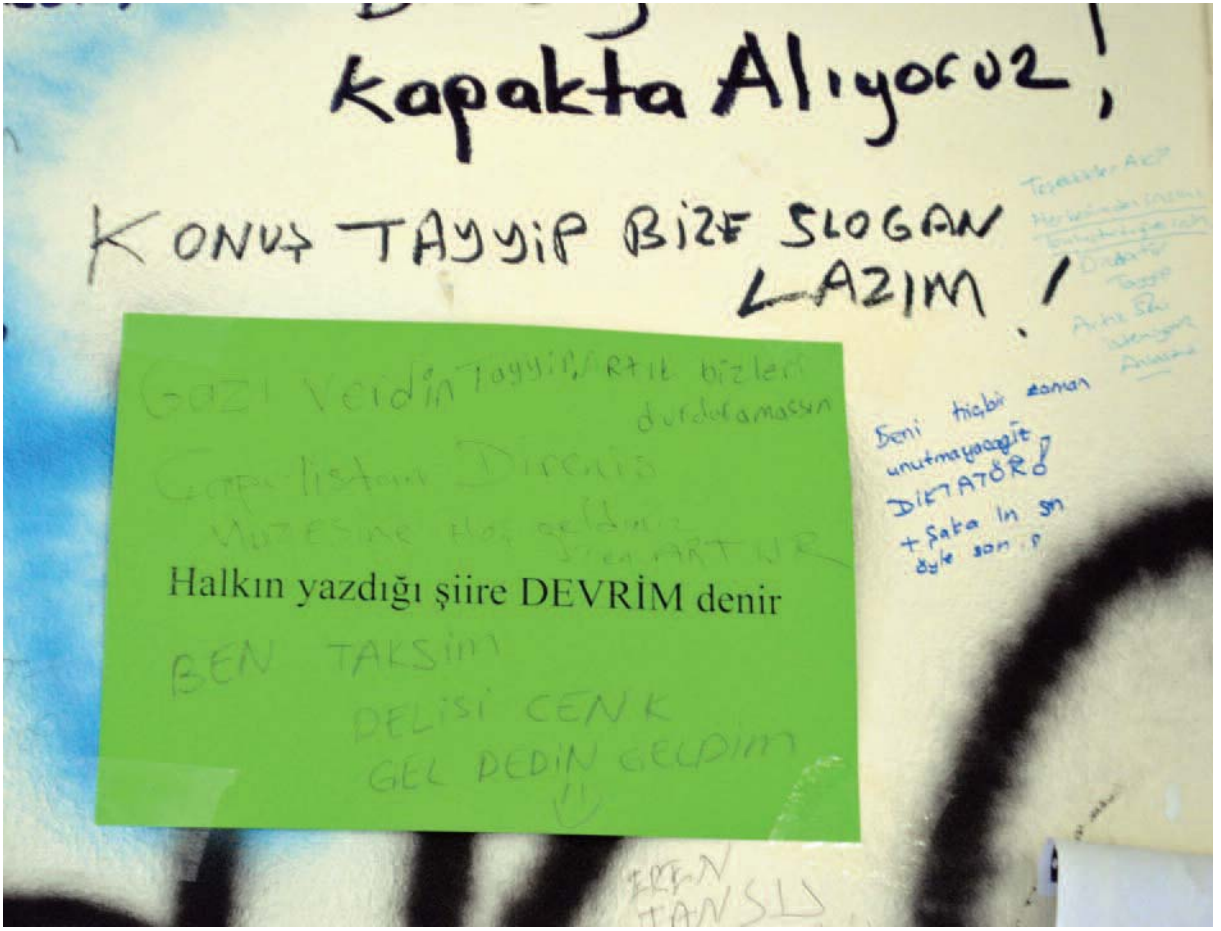 kapakta Alıyoruz!
KONUŞ TAYYİP BİZE SLOGAN
LAZIM !
Teşekkürler AKP
Diktatör
Tayyip
Artık Seni
istemiyoruz
Anlasana
Gazı Verdin Tayyip, ARTIK bizleri
durduramassın
Direniş
MÜZESİNE Hoş geldiniz
Halkın yazdığı şiire DEVRİM denir
BEN TAKSİM
DELİSİ CENK
GEL DEDİN GELDİM
Seni hiçbir zaman
unutmayacağız
DİKTATÖR!
+ Şaka
öyle san :p
EREN
TANSU